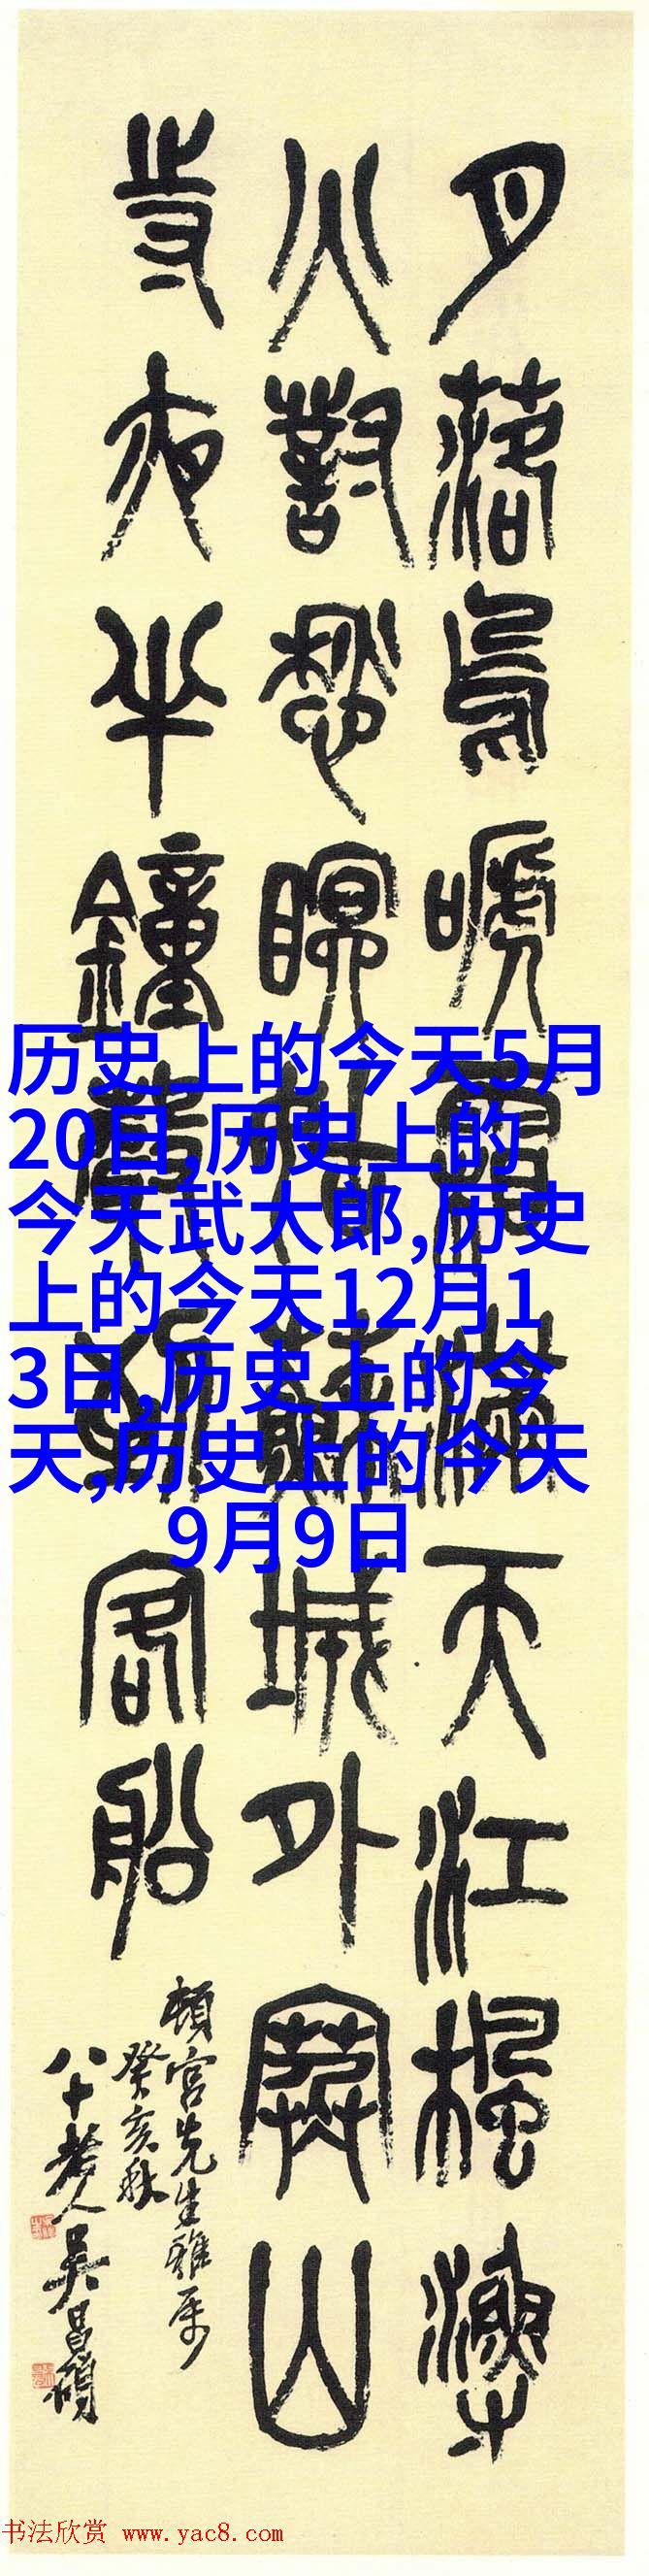 月落烏嗁霜滿天江楓漁
火對愁眠姑蘇城外寒山
寺夜半鐘聲到客船
頓宮先生雅屬
癸亥秋
八十老人吳昌碩
历史上的今天5月
20日,历史上的
今天武大郎,历史
上的今天12月1
3日,历史上的今
天,历史上的今天
9月9日
书法欣赏 www.yac8.com